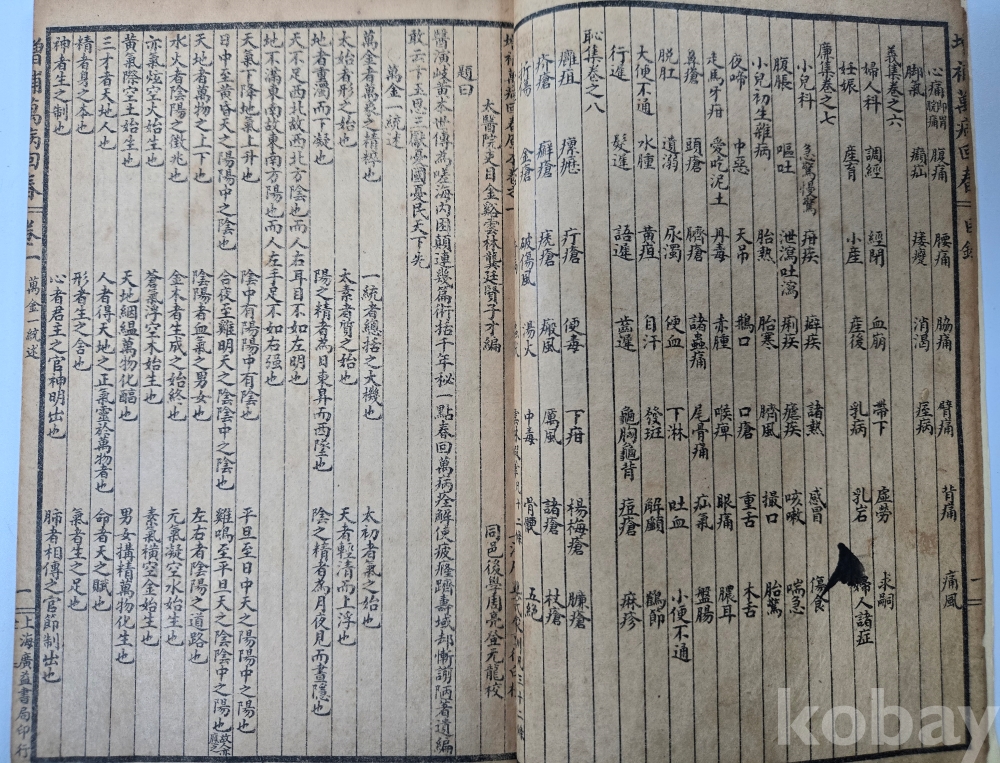 增補萬病回春 目錄 一
心痛即胃脘痛 腹痛 腰痛 脇痛 臂痛 背痛 痛風
脚氣 㿗疝 痿躄 消渴 痙病
義集卷之六
婦人科 調經 經閉 血崩 帶下 虛勞 求嗣
妊娠 產育 小產 產後 乳病 乳岩 婦人諸症
廉集卷之七
小兒科 急驚慢驚 疳疾 癖疾 諸熱 感冒 傷食
腹脹 嘔吐 泄瀉吐瀉 痢疾 瘧疾 咳嗽 喘急
小兒初生雜病 胎熱 胎寒 臍風 撮口 胎驚
夜啼 中惡 天吊 鵝口 口瘡 重舌 木舌
走馬牙疳 愛吃泥土 丹毒 赤腫 喉痺 眼痛 膿耳
鼻瘡 頭瘡 臍瘡 諸蟲痛 尾骨痛 疝氣 盤腸
脫肛 遺溺 尿濁 便血 下淋 吐血 小便不通
大便不通 水腫 黃疸 自汗 發斑 解顱 鶴節
行遲 髮遲 語遲 齒遲 龜胸龜背 痘瘡 麻疹
恥集卷之八
癰疽 瘰癧 疔瘡 便毒 下疳 楊梅瘡 臁瘡
疥瘡 癬瘡 疣瘡 癜風 厲風 諸瘡 杖瘡
折傷 金瘡 破傷風 湯火 中毒 骨鯁 五絕
增補萬病回春原本卷之一
太醫院吏目金谿雲林龔廷賢子才編 同邑後學周亮登元龍校
題曰
醫演岐黃本世傳為嗟海內困顛連幾篇術括千年秘一點春回萬病痊解使疲癃躋壽域却慚謭陋著遺編
敢云卞玉思三獻憂國憂民天下先
萬金一統述
萬金者萬病之精粹也 一統者總括之大機也 太初者氣之始也
太始者形之始也 太素者質之始也 天者輕清而上浮也
地者重濁而下凝也 陽之精者為日東昇而西墜也 陰之精者為月夜見而晝隱也
天不足西北故西北方陰也而人右耳目不如左明也
地不滿東南故東南方陽也而人左手足不如右强也
天氣下降地氣上升也 陰中有陽陽中有陰也 平旦至日中天之陽陽中之陽也
日中至黃昏天之陽陽中之陰也 合夜至雞明天之陰陰中之陰也 雞鳴至平旦天之陰陰中之陽也故人亦應之
天地者萬物之上下也 陰陽者血氣之男女也 左右者陰陽之道路也
水火者陰陽之徵兆也 金木者生成之始終也 元氣凝空水始生也
赤氣炫空火始生也 蒼氣浮空木始生也 素氣橫空金始生也
黃氣際空土始生也 天地絪縕萬物化醕也 男女搆精萬物化生也
三才者天地人也 人者得天地之正氣靈於萬物者也 命者天之賦也
精者身之本也 形者生之舍也 氣者生之充也
神者生之制也 心者君主之官神明出也 肺者相傳之官節制出也
增補萬病回春 卷一 萬金一統述 一 上海廣益書局印行
kobay